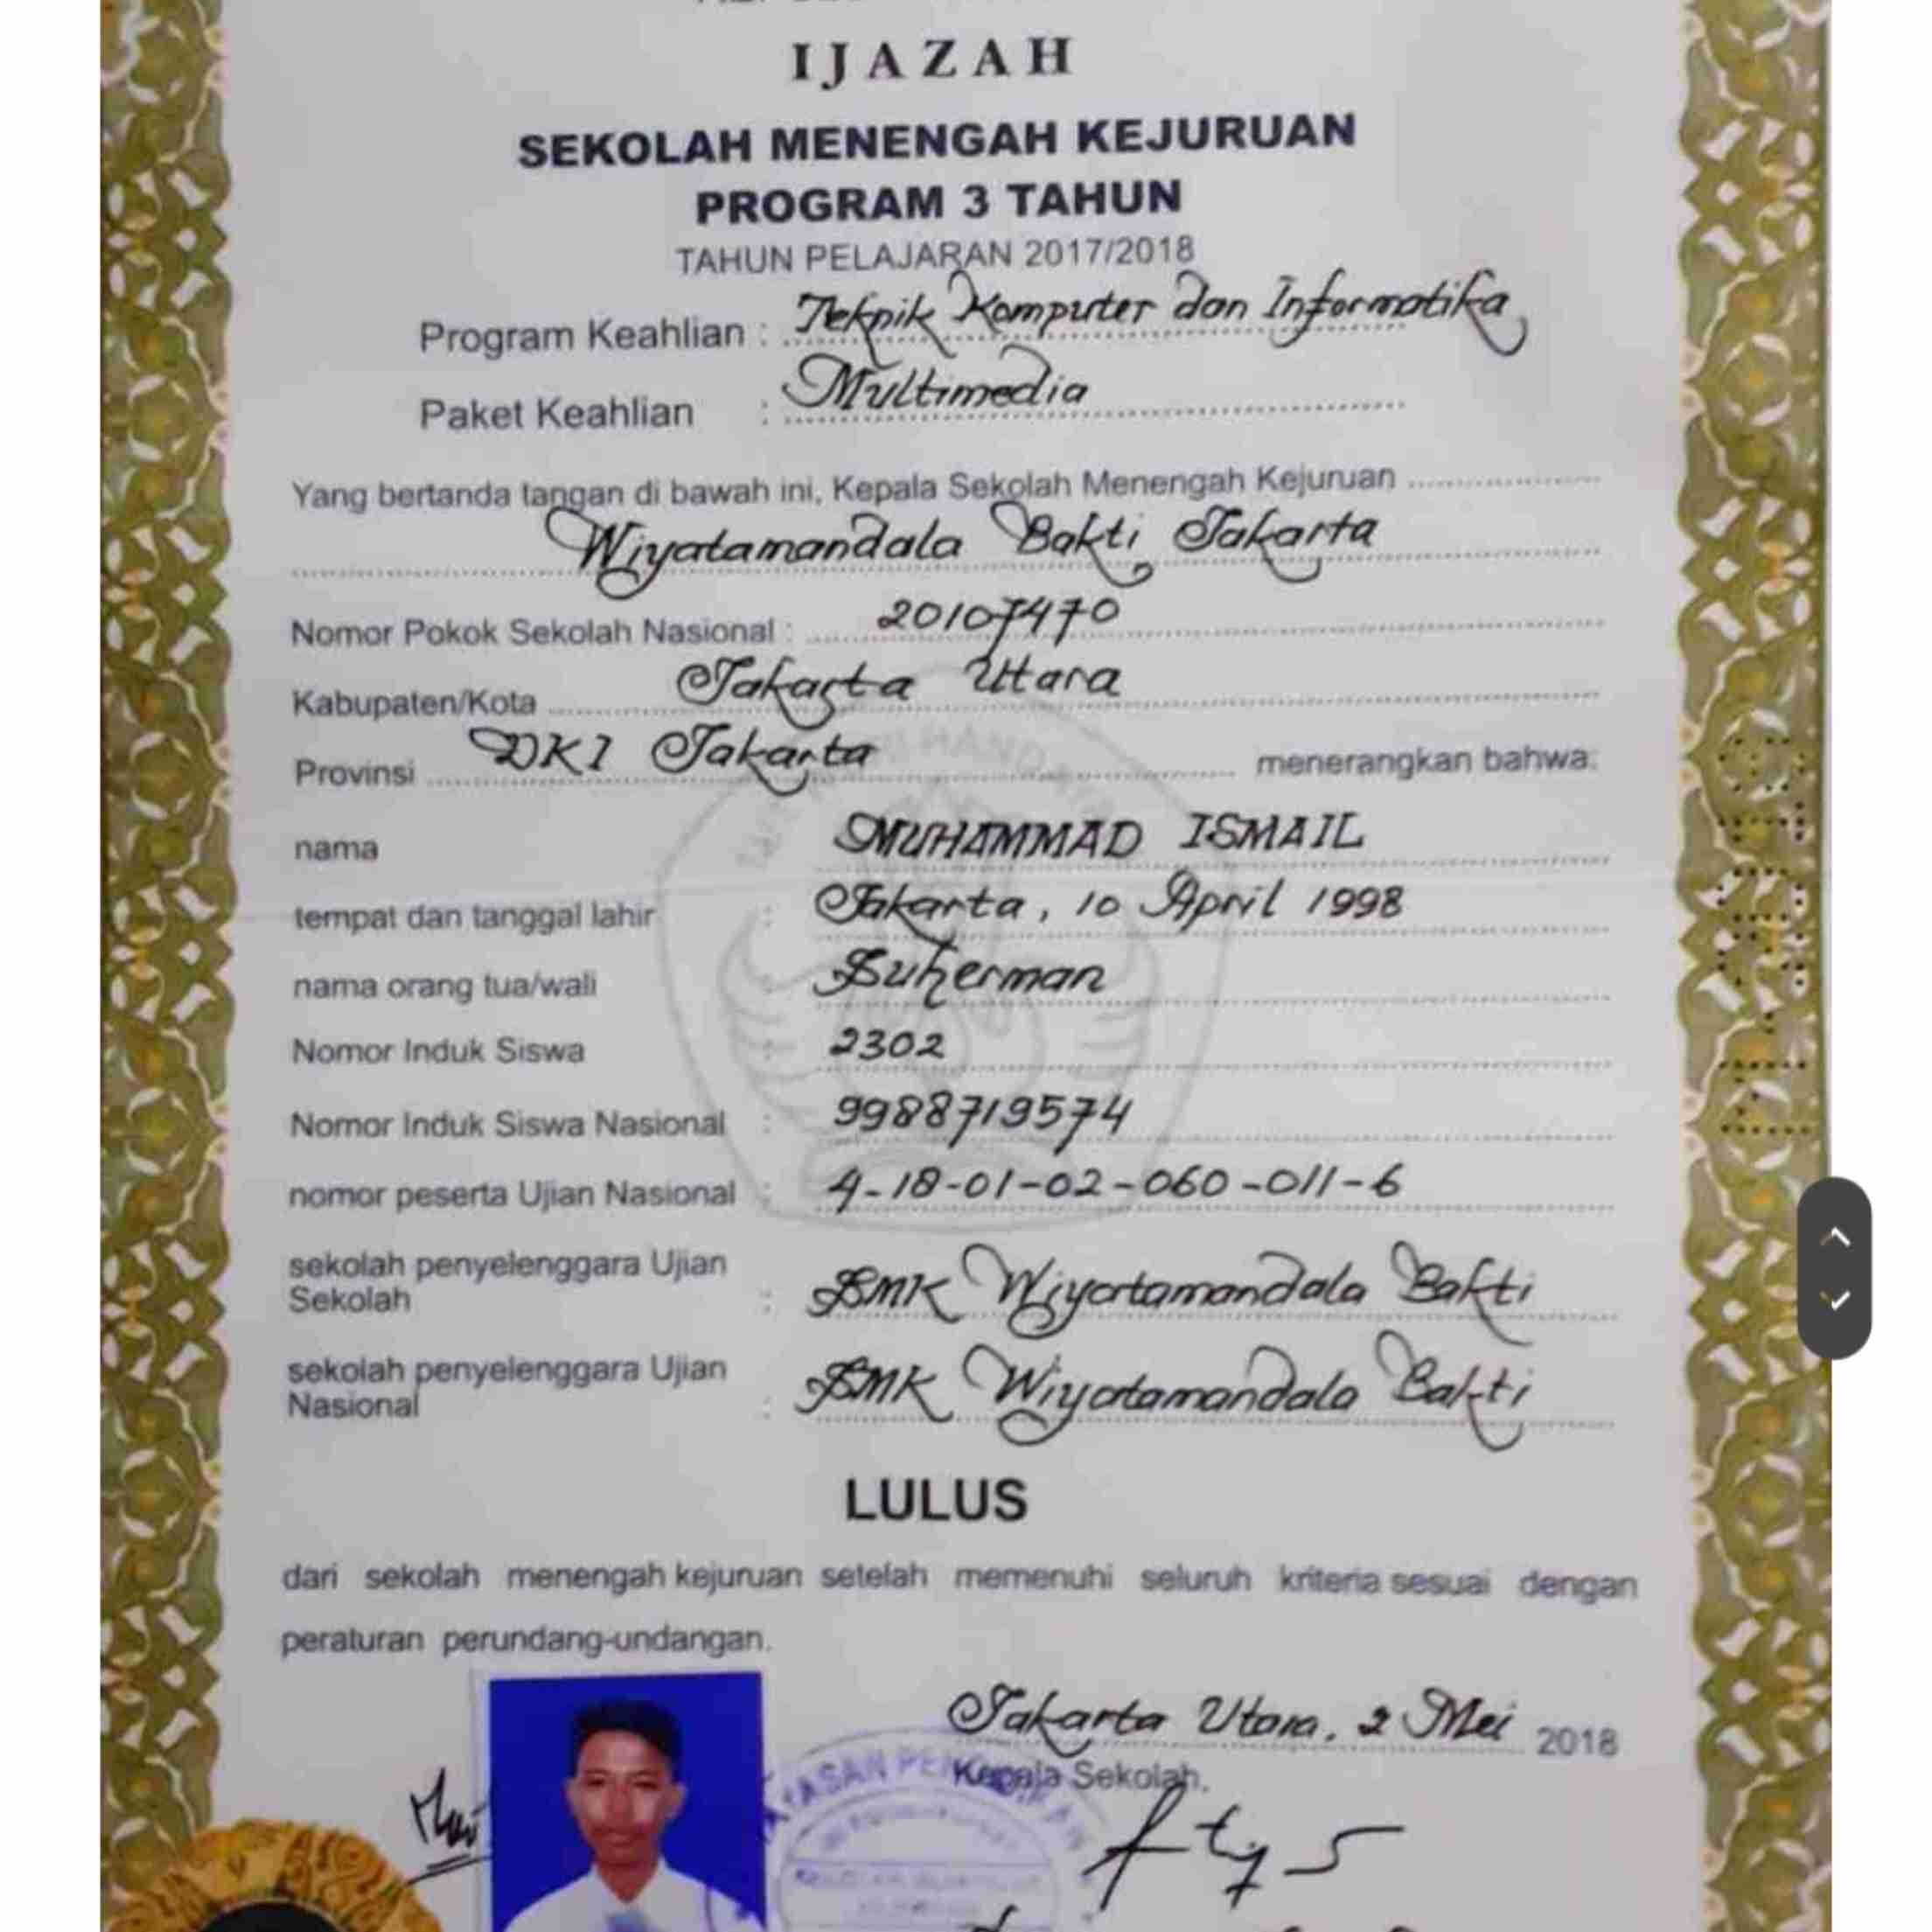 IJAZAH
SEKOLAH MENENGAH KEJURUAN
PROGRAM 3 TAHUN
TAHUN PELAJARAN 2017/2018
Program Keahlian : Teknik Komputer dan Informatika
Paket Keahlian : Multimedia
Yang bertanda tangan di bawah ini, Kepala Sekolah Menengah Kejuruan
Wiyatamandala Bakti Jakarta
Nomor Pokok Sekolah Nasional : 20107470
Kabupaten/Kota Jakarta Utara
Provinsi DKI Jakarta menerangkan bahwa:
nama MUHAMMAD ISMAIL
tempat dan tanggal lahir : Jakarta, 10 April 1998
nama orang tua/wali Suherman
Nomor Induk Siswa : 2302
Nomor Induk Siswa Nasional : 9988719574
nomor peserta Ujian Nasional : 4-18-01-02-060-011-6
sekolah penyelenggara Ujian
Sekolah : SMK Wiyatamandala Bakti
sekolah penyelenggara Ujian
Nasional : SMK Wiyatamandala Bakti
LULUS
dari sekolah menengah kejuruan setelah memenuhi seluruh kriteria sesuai dengan
peraturan perundang-undangan.
Jakarta Utara, 2 Mei 2018
YASAN PENDIDIKAN
Kepala Sekolah,